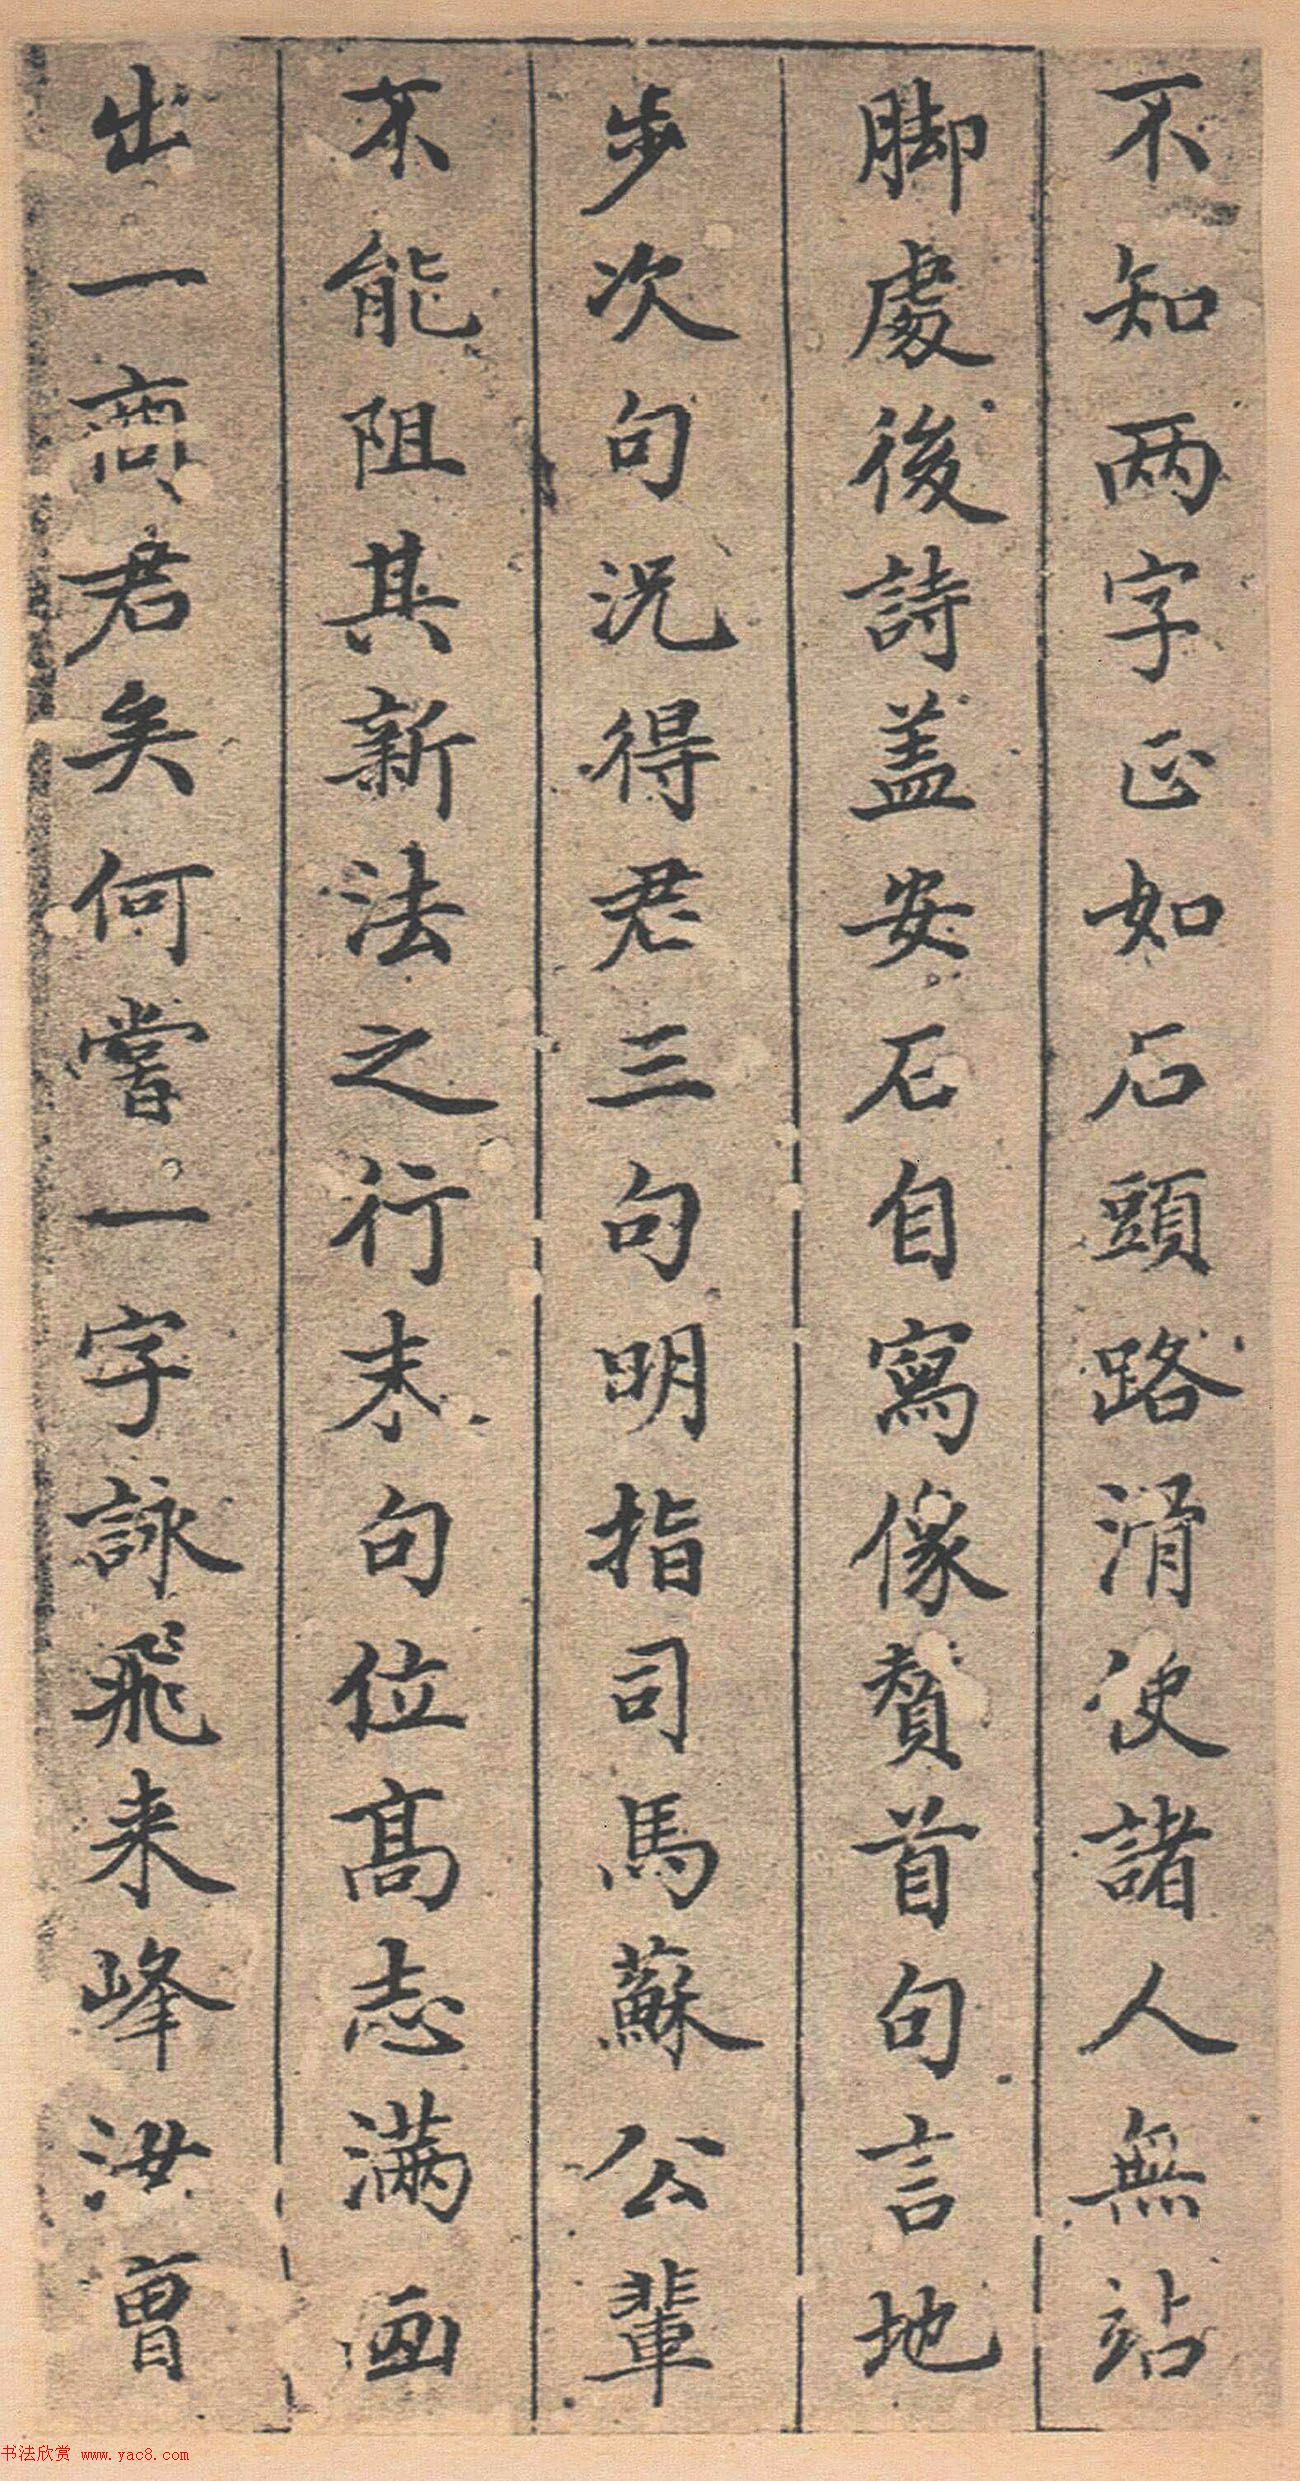 不知两字正如石頭路滑使諸人無站
脚處後詩盖安石自寫像贊首句言地
步次句况得君三句明指司馬蘇公輩
不能阻其新法之行末句位高志满画
出一商君矣何嘗一字詠飛来峰汝曾
书法欣赏 www.yac8.com